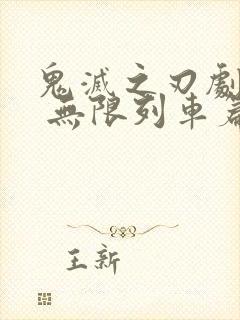 鬼滅之刃劇
無限列車篇
王新